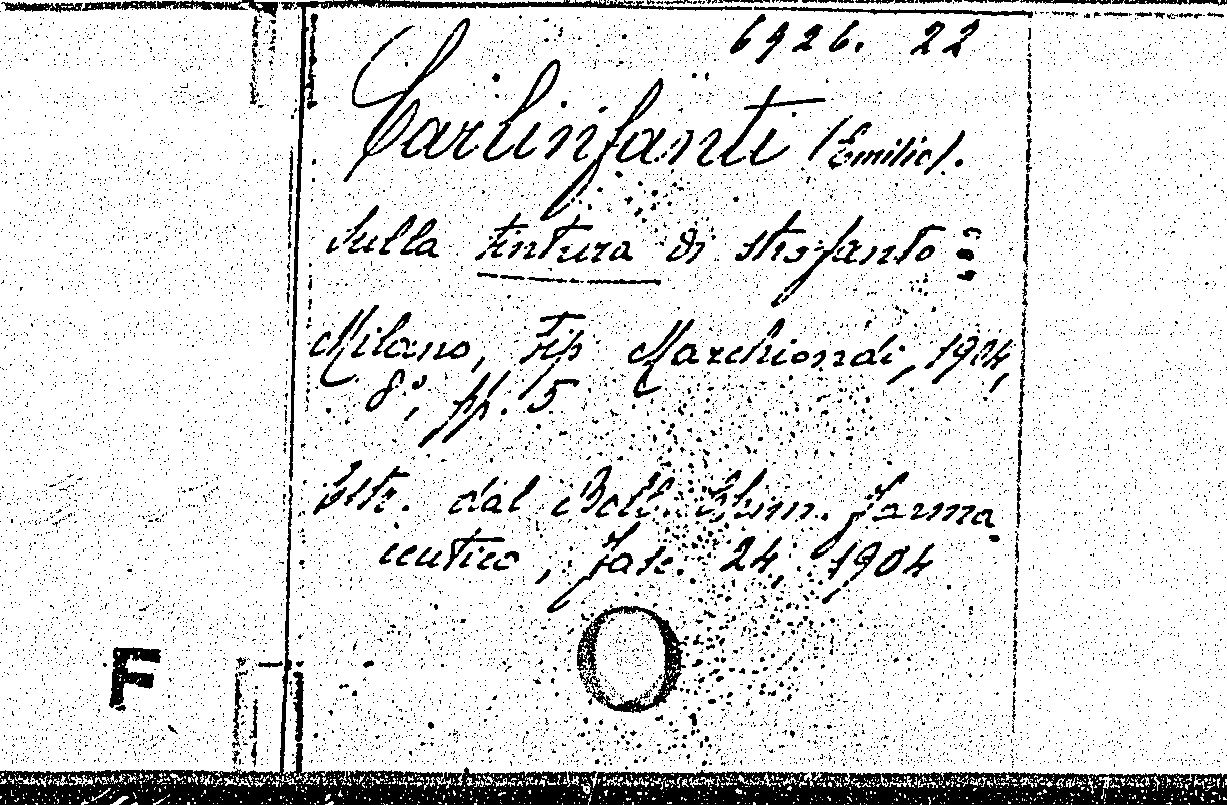 6926. 22
Carlinfanti (Emilio).
Sulla tintura di strofanto =
Milano, Tip Marchiondi, 1904,
8°, pp. 5
Estr. dal Boll. Chim. Farma
ceutico, fasc. 24, 1904
F